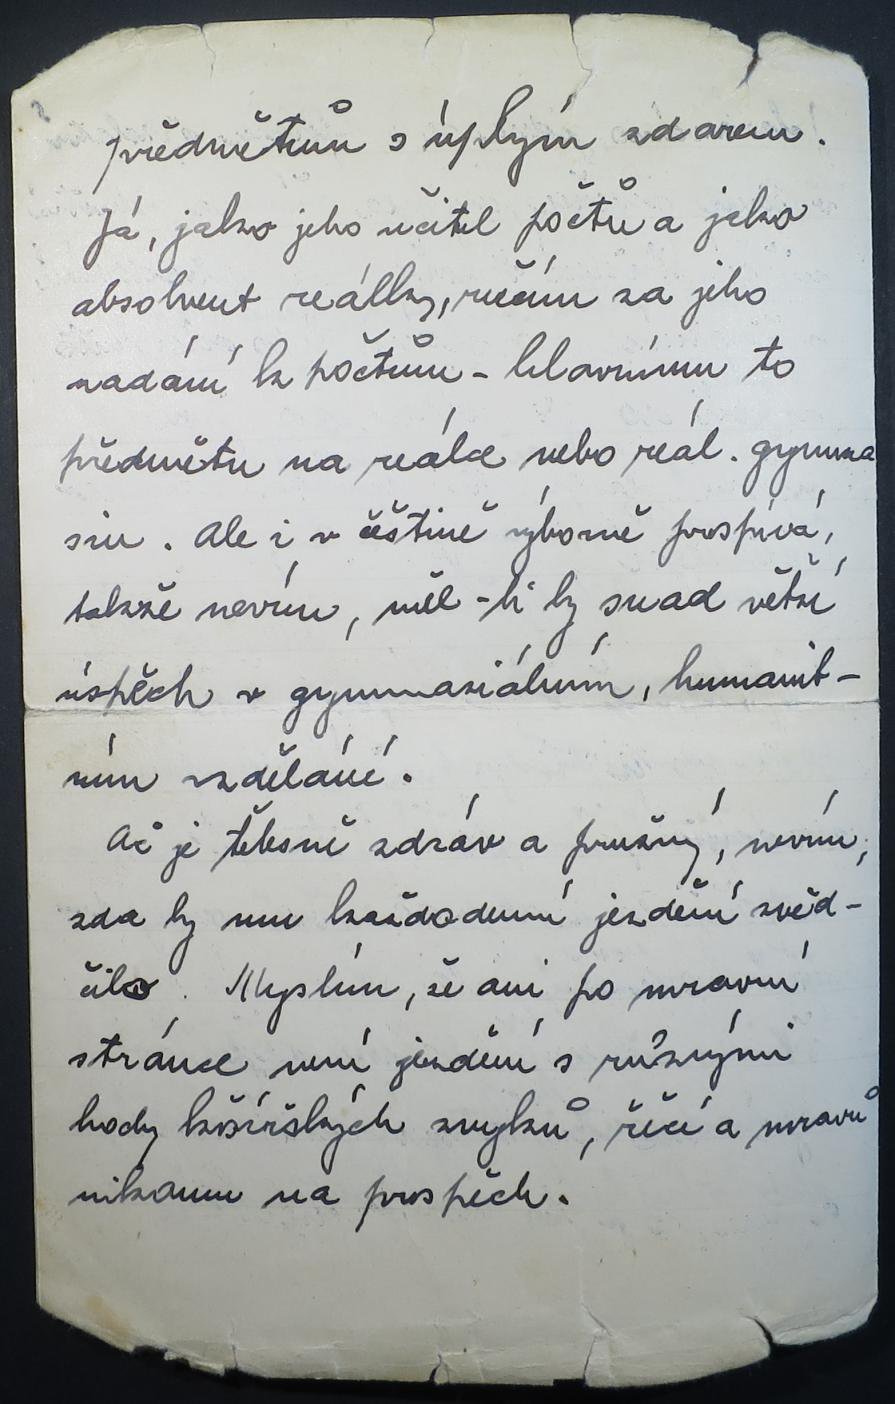 předmětům s úplným zdarem.
Já, jako jeho učitel počtů a jako
absolvent reálky, ručím za jeho
nadání k počtům - hlavnímu to
předmětu na reálce nebo reál. gymna
siu. Ale i v češtině výborně prospívá,
takže nevím, měl-li by snad větší
úspěch v gymnasiálním, humanit-
ním vzdělání.
Ač je tělesně zdráv a pružný, nevím,
zda by mu každodenní jezdění svěd-
čilo. Myslím, že ani po mravní
stránce není jezdění s různými
hochy košířských zvyků, řečí a mravů
nikomu na prospěch.